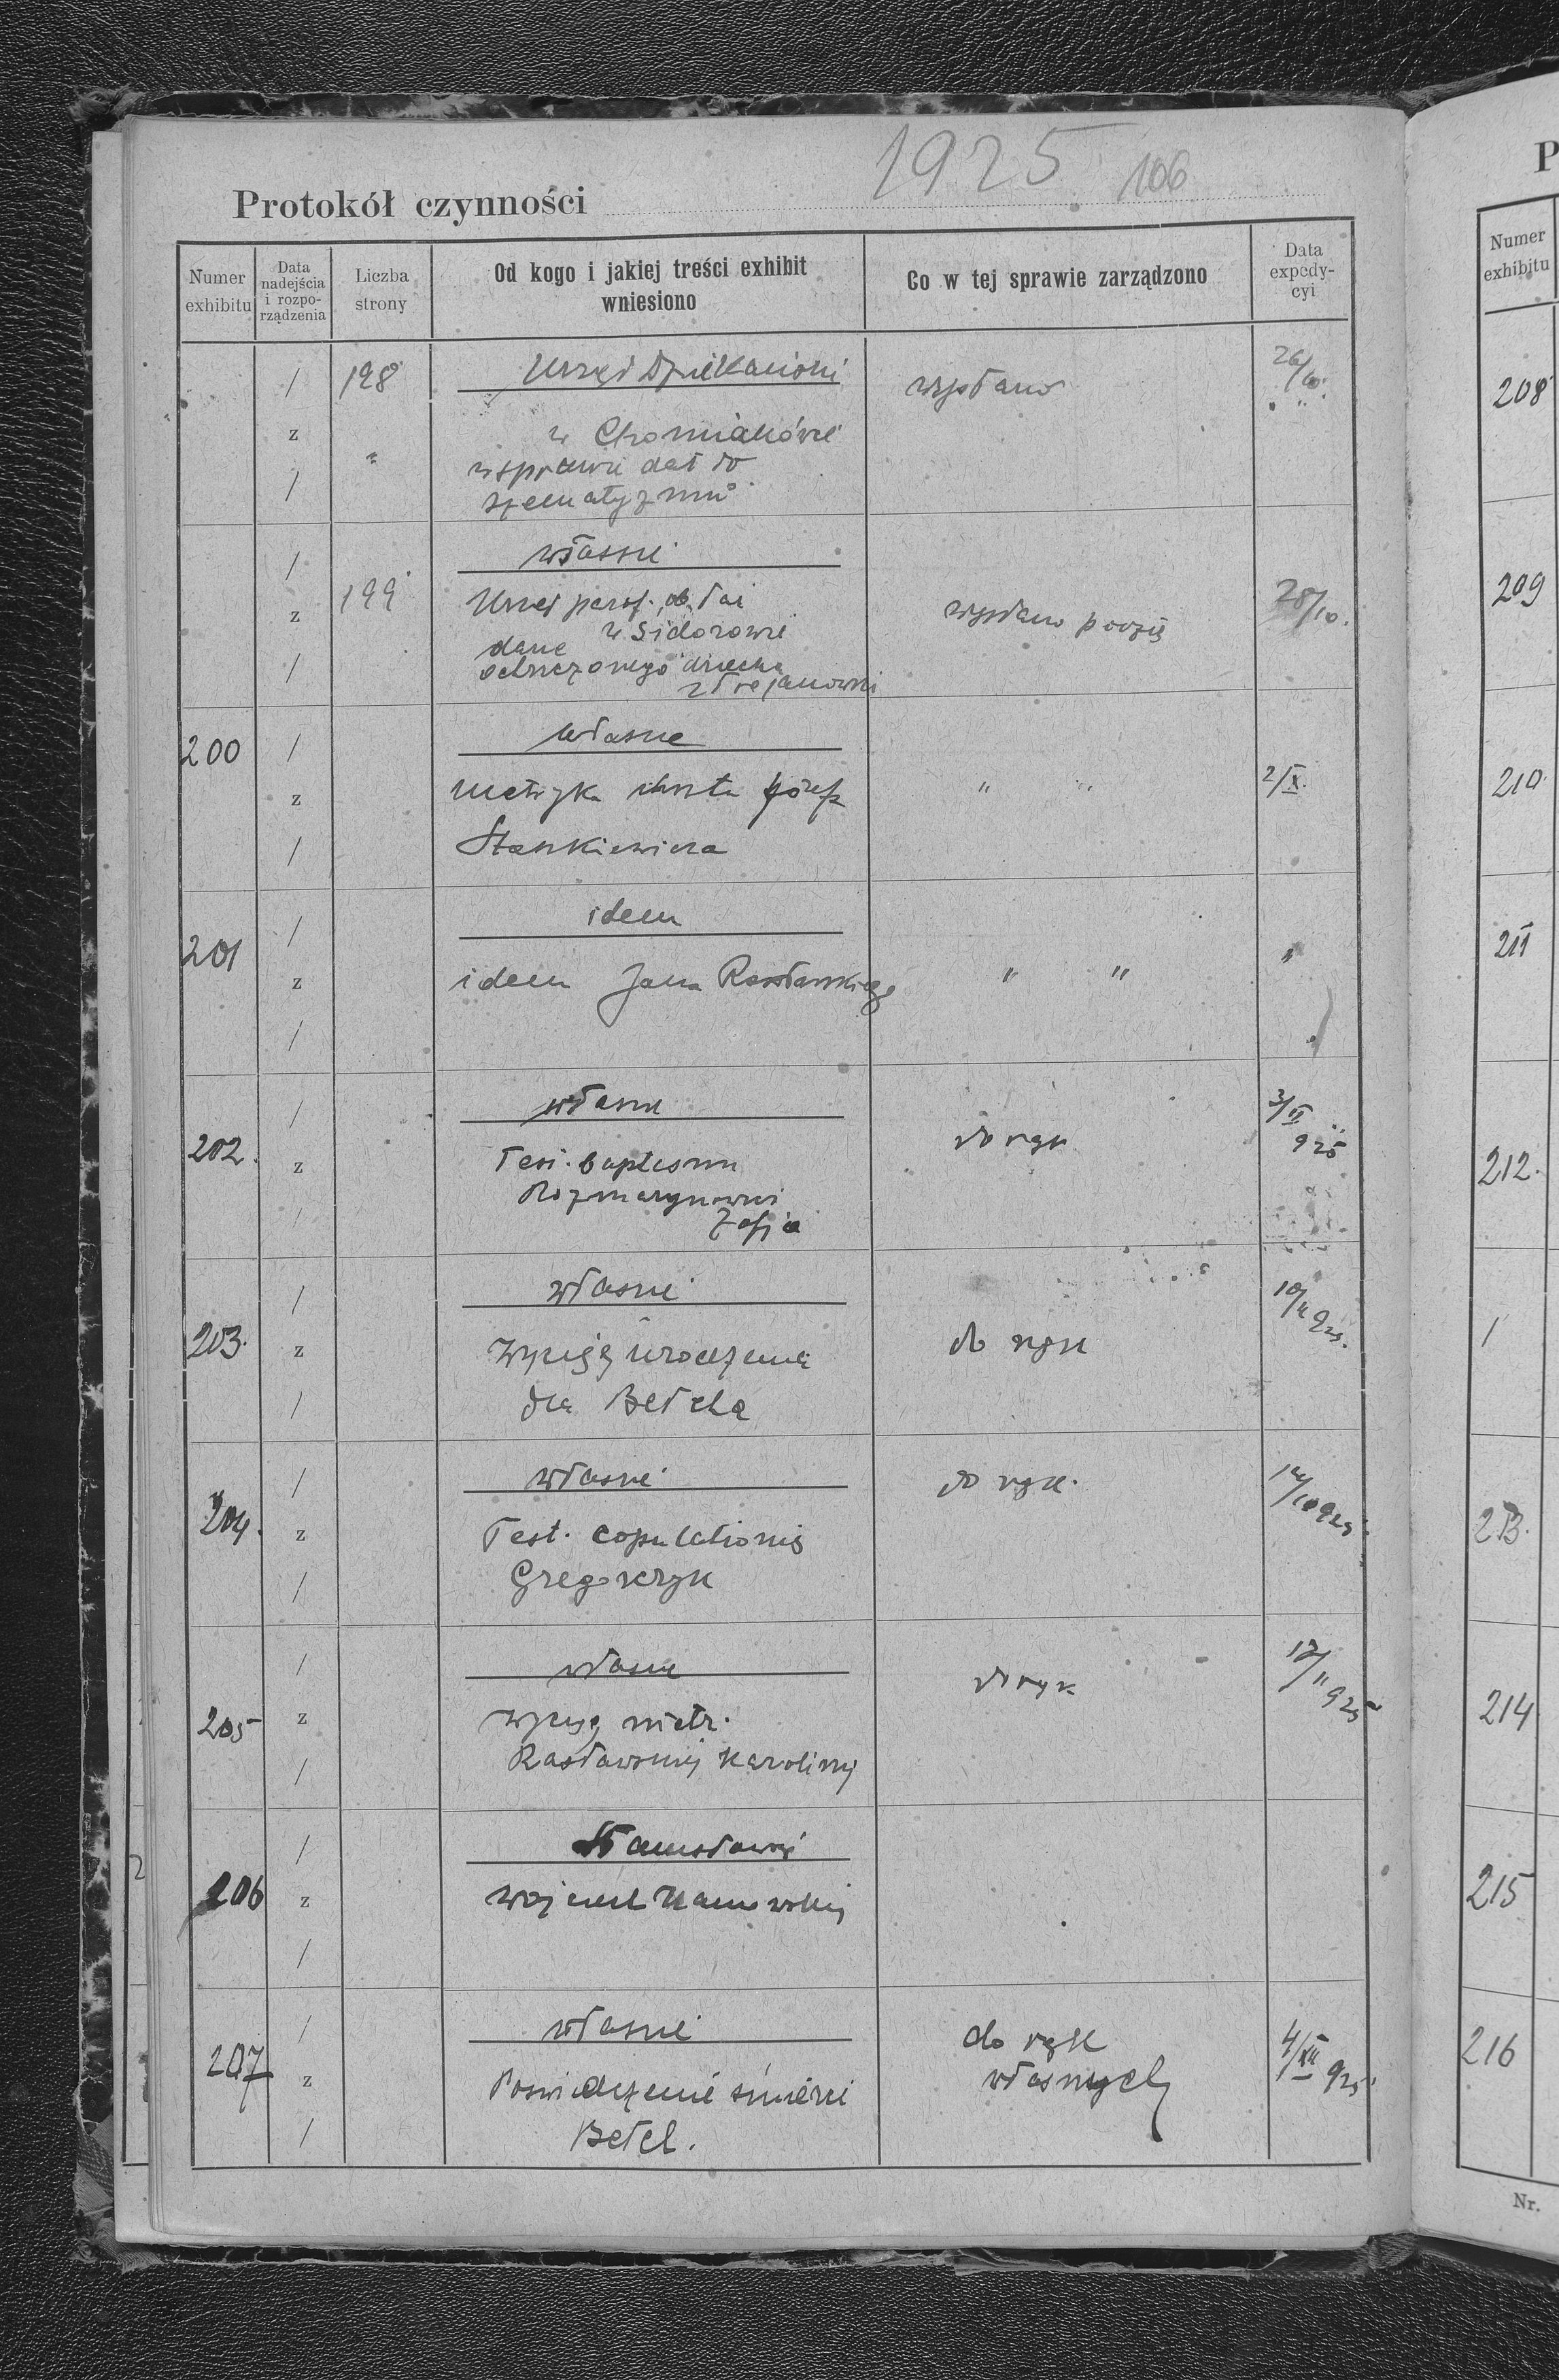 1925 106
Protokół czynności
Numer exhibitu
Data nadejścia i rozporządzenia
Liczba strony
Od kogo i jakiej treści exhibit wniesiono
Co w tej sprawie zarządzono
Data expedycyi
/ 198 Urząd Dziekański wysłano 26/10.
z " w Chomiakówce
wsprawie dat do
/ szematyzmu
/ własne
z 199 Urząd paraf. ob. łać wysłano pocztą 28/10.
w Sidorowie
dane
/ ochrzczonego dziecka
200 / własne
z metryka chrztu Józefa " " 2/X.
/ Stankiewicza
201 / idem
z idem Jana Rasławskiego " " "
/
/ własne 3/II
202. z Test. baptismu do rąk 925
Rozmarynowicz
/ Zofja
/ własne 10/11 925.
203. z Wyciąg urodzenia do rąk
/ dla Betcha
/ własne do rąk. 12/10 925
204. z Test. copulationis
/ Gregorczyk
/ własne 17/11 925
205 z wyciąg metr. do rąk
/ Rasławskiej Karoliny
/ Stanisławów
206 z Wojciech
/
/ własne do rąk 4/XII 925
207 z Poświadczenie śmierci własnych
/ Betch.
P
Numer exhibitu
208
209
210
211
212.
213.
214
215
216
Nr.